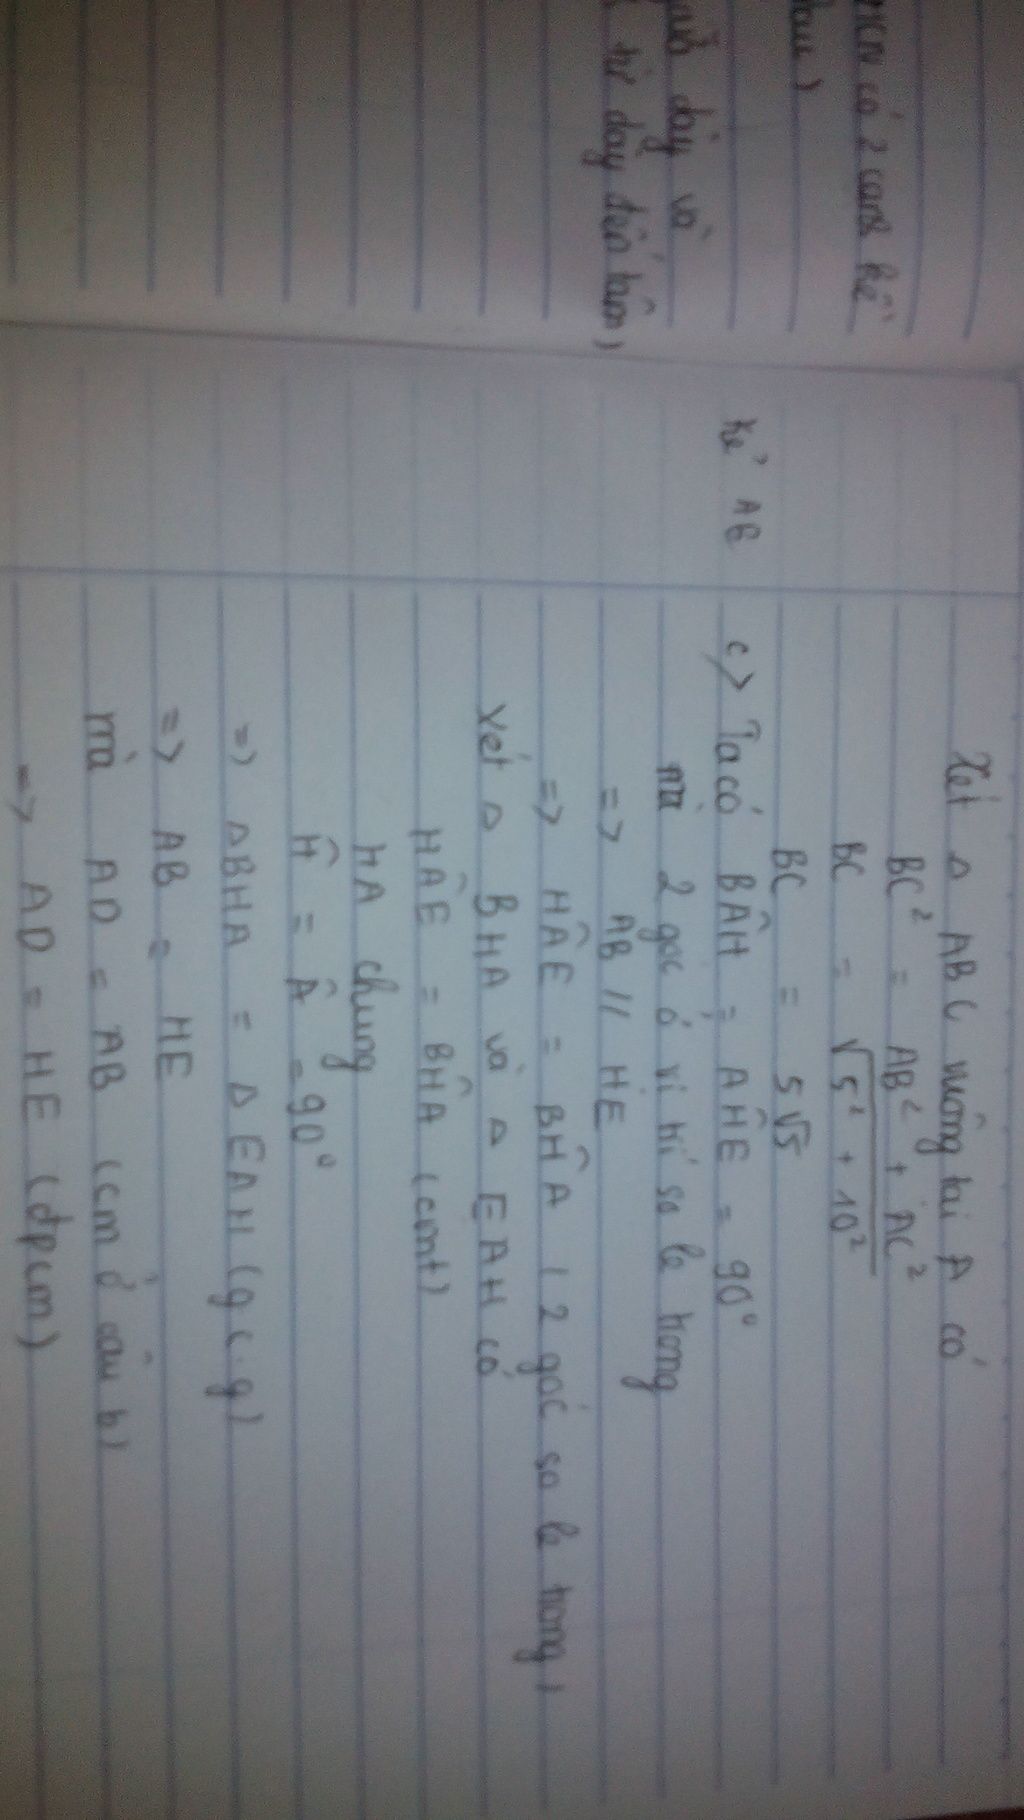 có 2 cạnh kề
dây và
từ dây đến tâm)
Kẻ AE
Xét Δ ABC vuông tại A có
BC² = AB² + AC²
BC = √5² + 10²
BC = 5√5
c> Ta có BÂH = AĤE = 90°
mà 2 góc ở vị trí so le trong
=> AB // HE
=> HÂE = BĤA ( 2 góc so le trong )
Xét Δ BHA và Δ EAH có
HÂE = BĤA (cmt)
HA chung
Ĥ = Â = 90°
=> ΔBHA = Δ EAH (g.c.g)
=> AB = HE
mà AD = AB (cm ở câu b)
=> AD = HE (đpcm)